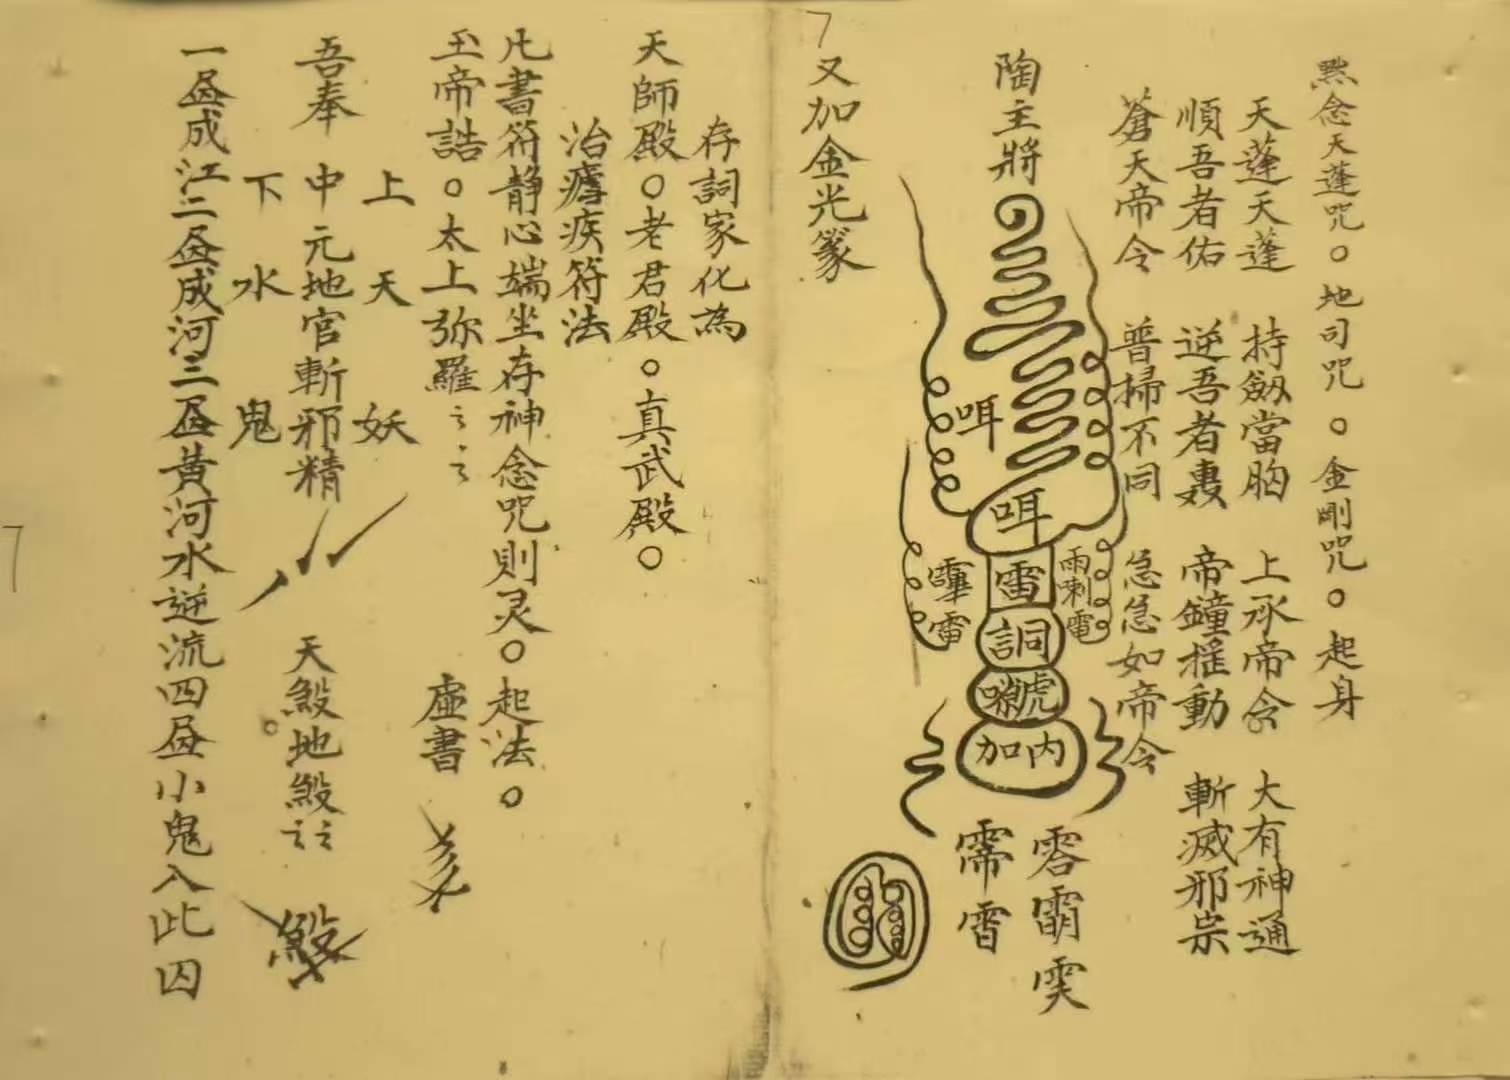 默念天蓬咒。地司咒。金剛咒。起身
天蓬天蓬 持劔當胸 上承帝令 大有神通
順吾者佑 逆吾者 帝鐘搖動 斬滅邪宗
蒼天帝令 普掃不同 急急如帝令
陶主將
咡
咡
雷
雷
電
詷
虎
加内
7
又加金光篆
存詞家化為
天師殿。老君殿。真武殿。
治瘧疾符法
凡書符静心端坐存神念咒則灵。起法。
玉帝誥。太上弥羅
虛書
上天妖
吾奉中元地官斬邪精
天煞地煞
下水鬼
一昷成江二昷成河三昷黄河水逆流四昷小鬼入此囚
7